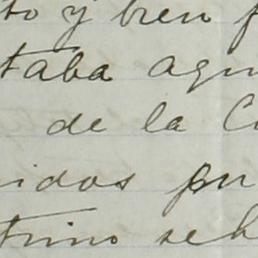 to y bien p
taba aqu
de la C
nidos pu
trino seh